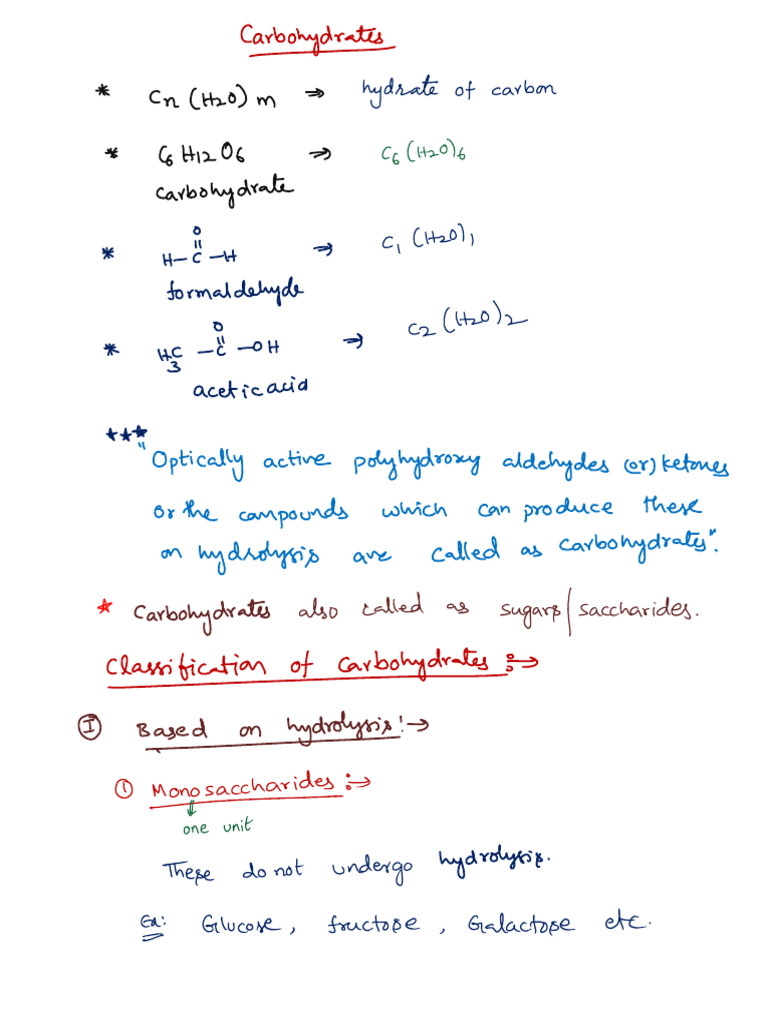 Carbohydrates
* Cn (H2O) m → hydrate of carbon
* C6 H12 O6 → C6 (H2O)6
carbohydrate
O
||
* H–C–H → C1 (H2O)1
formaldehyde
O
||
* H3C –C –OH → C2 (H2O)2
acetic acid
***
"Optically active polyhydroxy aldehydes (or) ketones
or the compounds which can produce these
on hydrolysis are called as carbohydrates".
* Carbohydrates also called as sugars/saccharides.
Classification of carbohydrates :→
I Based on hydrolysis! →
① Monosaccharides :→
↓
one unit
These do not undergo hydrolysis.
Ex: Glucose, fructose, Galactose etc.